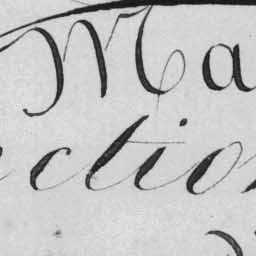 Ma
ctio